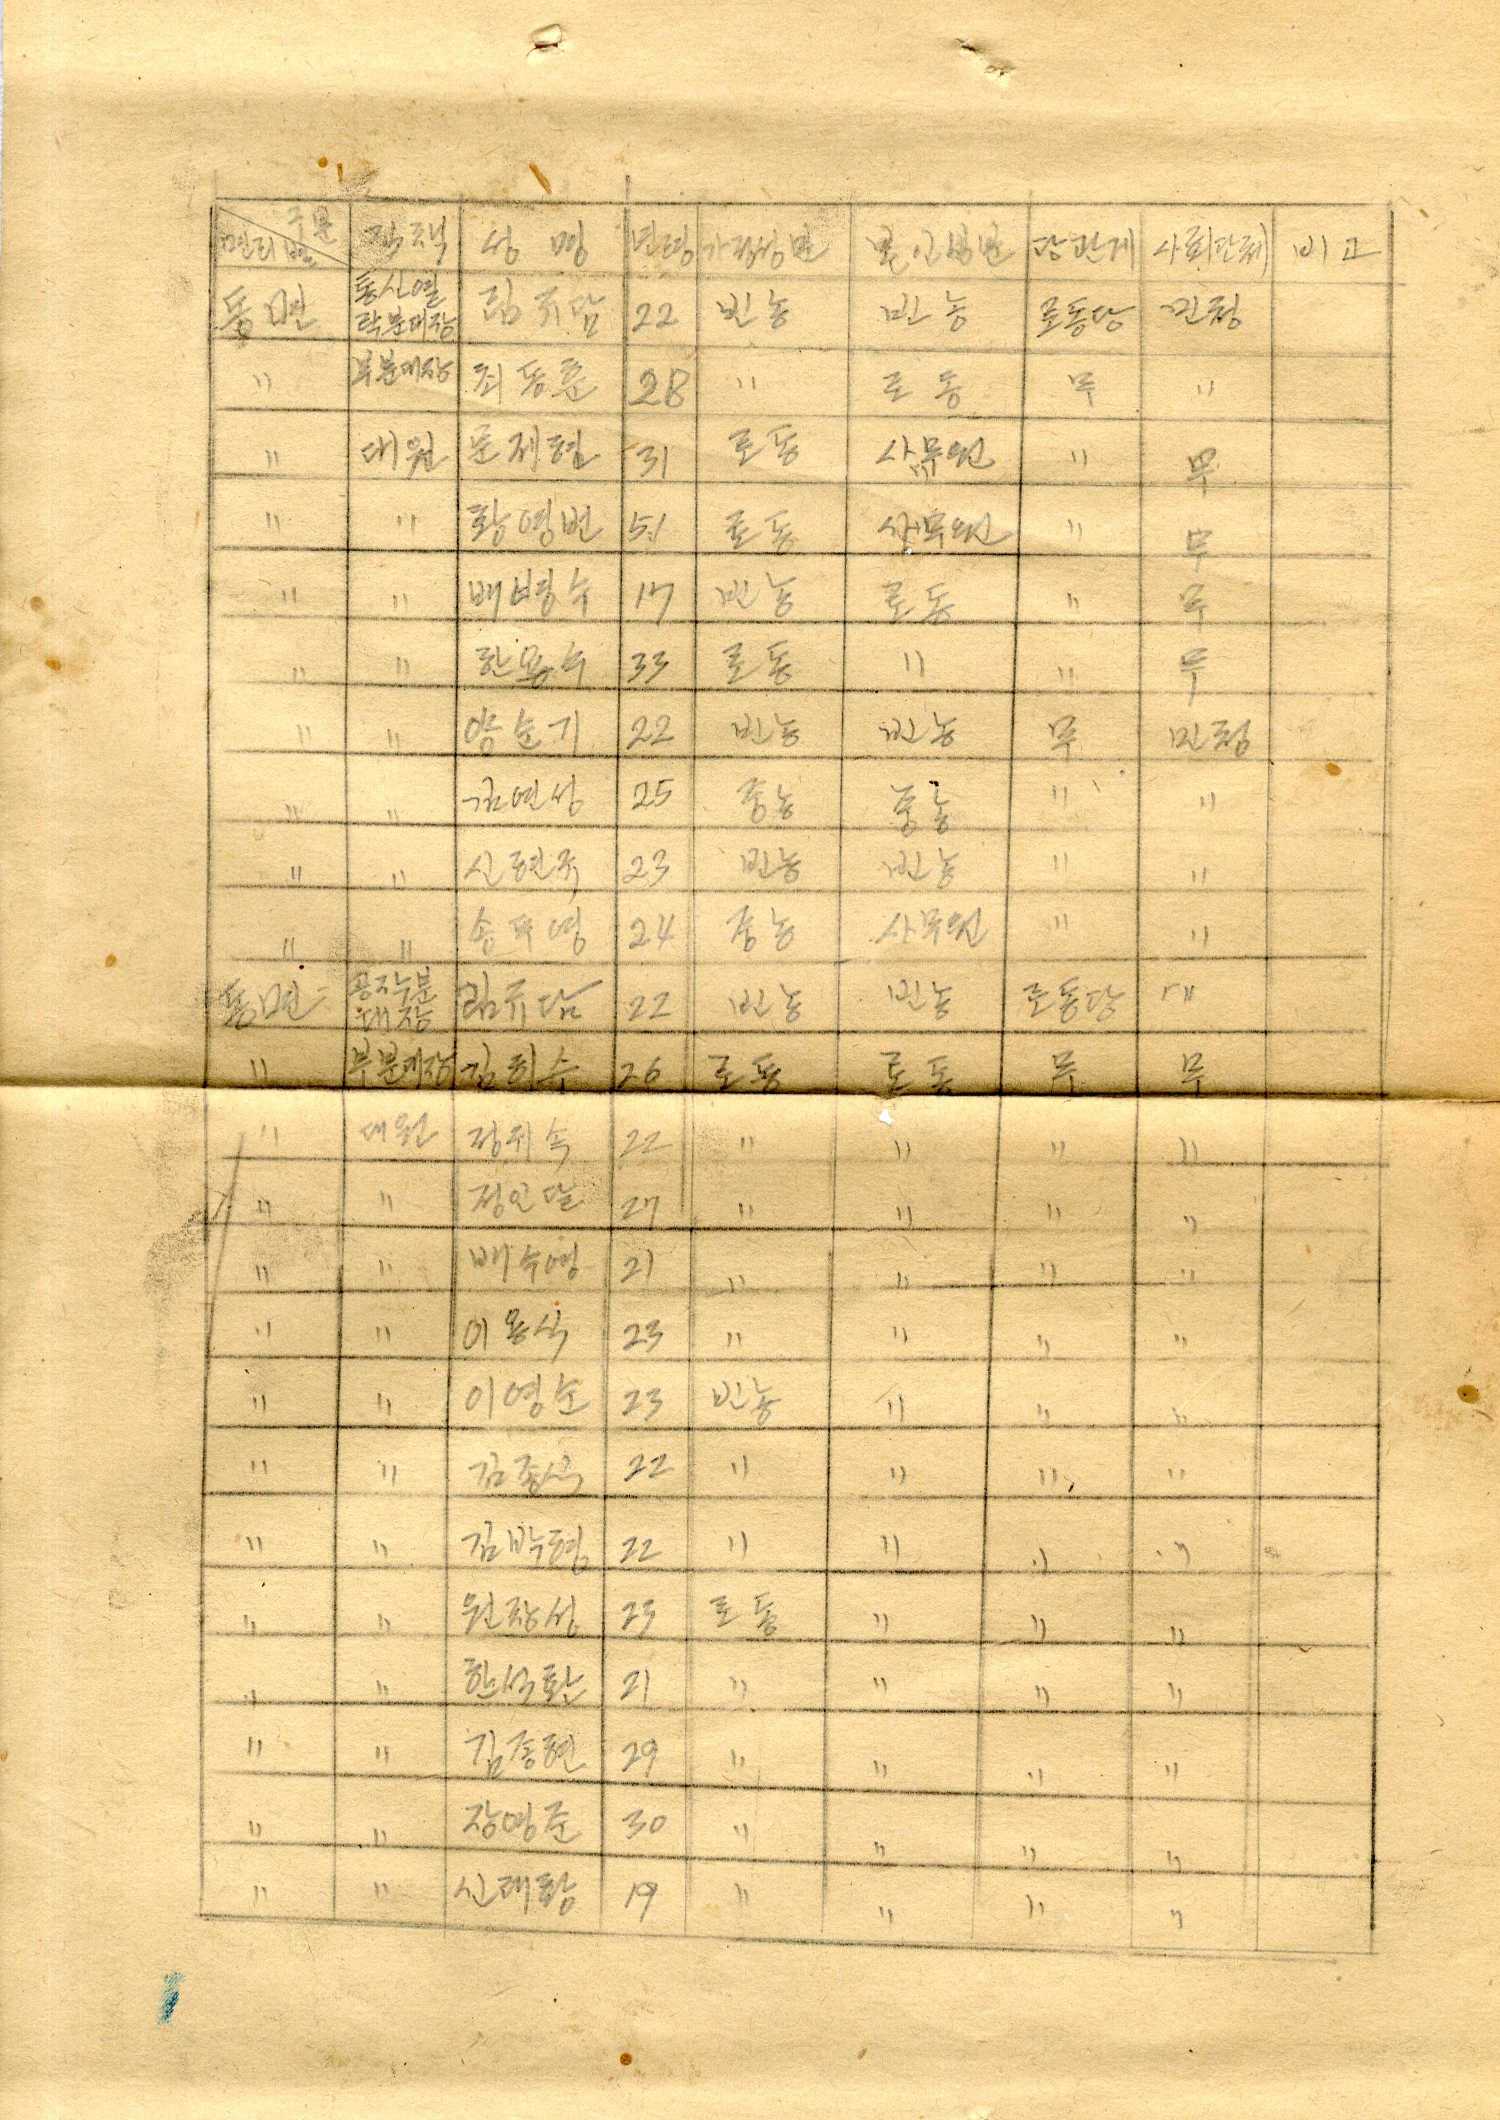 구분 면리별 직책 성명 년령 가정성분 본인성분 당관게 사회단체 비고
동면 통신연락분대장 림규담 22 빈농 빈농 로동당 민청
〃 부분대장 최동훈 28 〃 로동 무 〃
〃 대원 문제현 31 로동 사무원 〃 무
〃 〃 황영번 51 로동 사무원 〃 무
〃 〃 배병수 17 빈농 로동 〃 무
〃 〃 한용수 33 로동 〃 〃 무
〃 〃 양순기 22 빈농 빈농 무 민청
〃 〃 김연성 25 중농 중농 〃 〃
〃 〃 신현주 23 빈농 빈농 〃 〃
〃 〃 송두영 24 중농 사무원 〃 〃
동면 공작분대장 림규담 22 빈농 빈농 로동당 〃
〃 부분대장 김희수 26 로동 로동 무 무
〃 대원 정귀속 22 〃 〃 〃 〃
〃 〃 정인달 27 〃 〃 〃 〃
〃 〃 배수영 21 〃 〃 〃 〃
〃 〃 이용식 23 〃 〃 〃 〃
〃 〃 이영순 23 빈농 〃 〃 〃
〃 〃 김종식 22 〃 〃 〃 〃
〃 〃 김박형 22 〃 〃 〃 〃
〃 〃 원장성 23 로동 〃 〃 〃
〃 〃 한석환 21 〃 〃 〃 〃
〃 〃 김종현 29 〃 〃 〃 〃
〃 〃 장영준 30 〃 〃 〃 〃
〃 〃 신태황 19 〃 〃 〃 〃